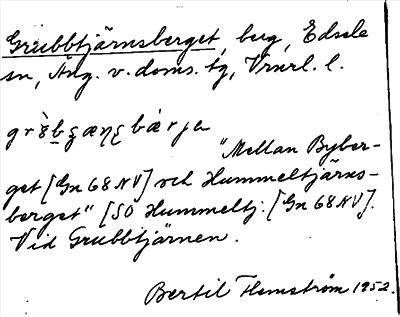 Grubbtjärnsberget, berg, Edsele
sn, Ång. v. doms. tg, Vnrl. l.
"Mellan Byber-
get [Gn 68 NV] och Hummeltjärns-
berget" [SO Hummeltj: [Gn 68 NV].
Vid Grubbtjärnen.
Bertil Flemström 1952.